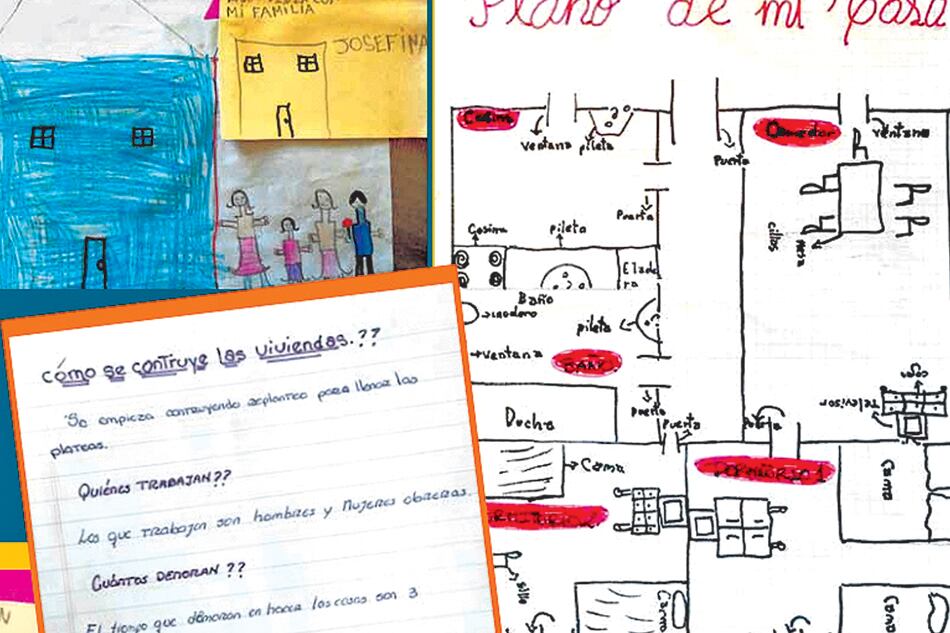 MI FAMILIA
JOSEFINA
Plano de mi Casa
Cosina
ventana
pileta
Puerta
Comedor
ventana
Puerta
sillas
Mesa
Cosina
pileta
Elade
ra
Baño
inodoro
pileta
ventana
BAÑO
puerta
Ducha
Puerta
Puerta
Televisor
Cama
DORMITORIO 1
Cama
silla
Cama
Cama
cómo se contruye las viviendas.??
Se empieza contruyendo replanteo para llenar las
plateas.
Quiénes TRABAJAN??
Los que trabajan son hombres y Mujeres obreras.
Cuántos DEMORAN ??
El tiempo que demoran en hacer las casas son 3